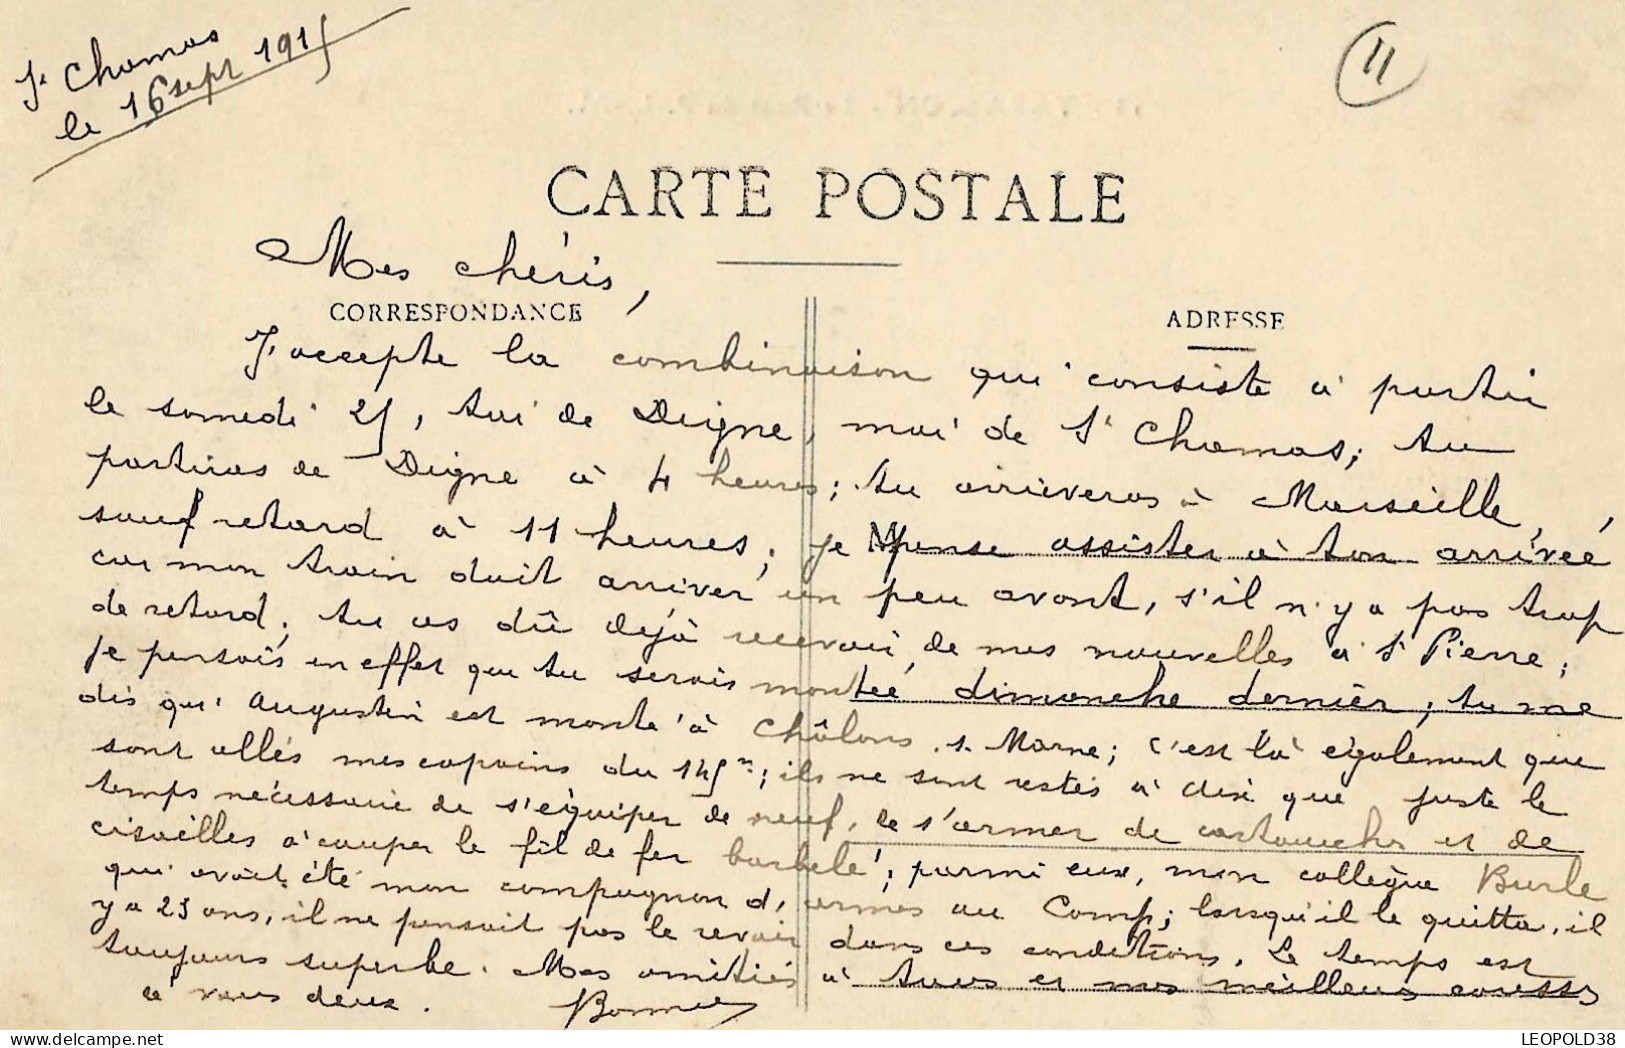 St Chamas
le 16 sept 1915
11
CARTE POSTALE
Mes chéris,
CORRESPONDANCE
ADRESSE
J'accepte la combinaison qui consiste à partir
le samedi 25, toi de Digne, moi de St Chamas; tu
partiras de Digne à 4 heures; tu arriveras à Marseille,
sauf retard à 11 heures; je pense assister à ton arrivée
car mon train doit arriver un peu avant, s'il n'y a pas trop
de retard; tu as dû déjà recevoir de mes nouvelles à St Pierre;
Je pensais en effet que tu serais montée dimanche dernier; tu me
dis qu'Augustin est monté à Châlons s. Marne; c'est là également que
sont allés mes copains du 145e; ils ne sont restés à Aix que juste le
temps nécessaire de s'équiper de neuf, de s'armer de cartouches et de
cisailles à couper le fil de fer barbelé; parmi eux, mon collègue Burle
qui avait été mon compagnon d'armes au Camp; lorsqu'il le quitta, il
y a 23 ans, il ne pensait pas le revoir dans ces conditions. Le temps est
toujours superbe. Mes amitiés à tous et mes meilleures caresses
à vous deux.
LEOPOLD38